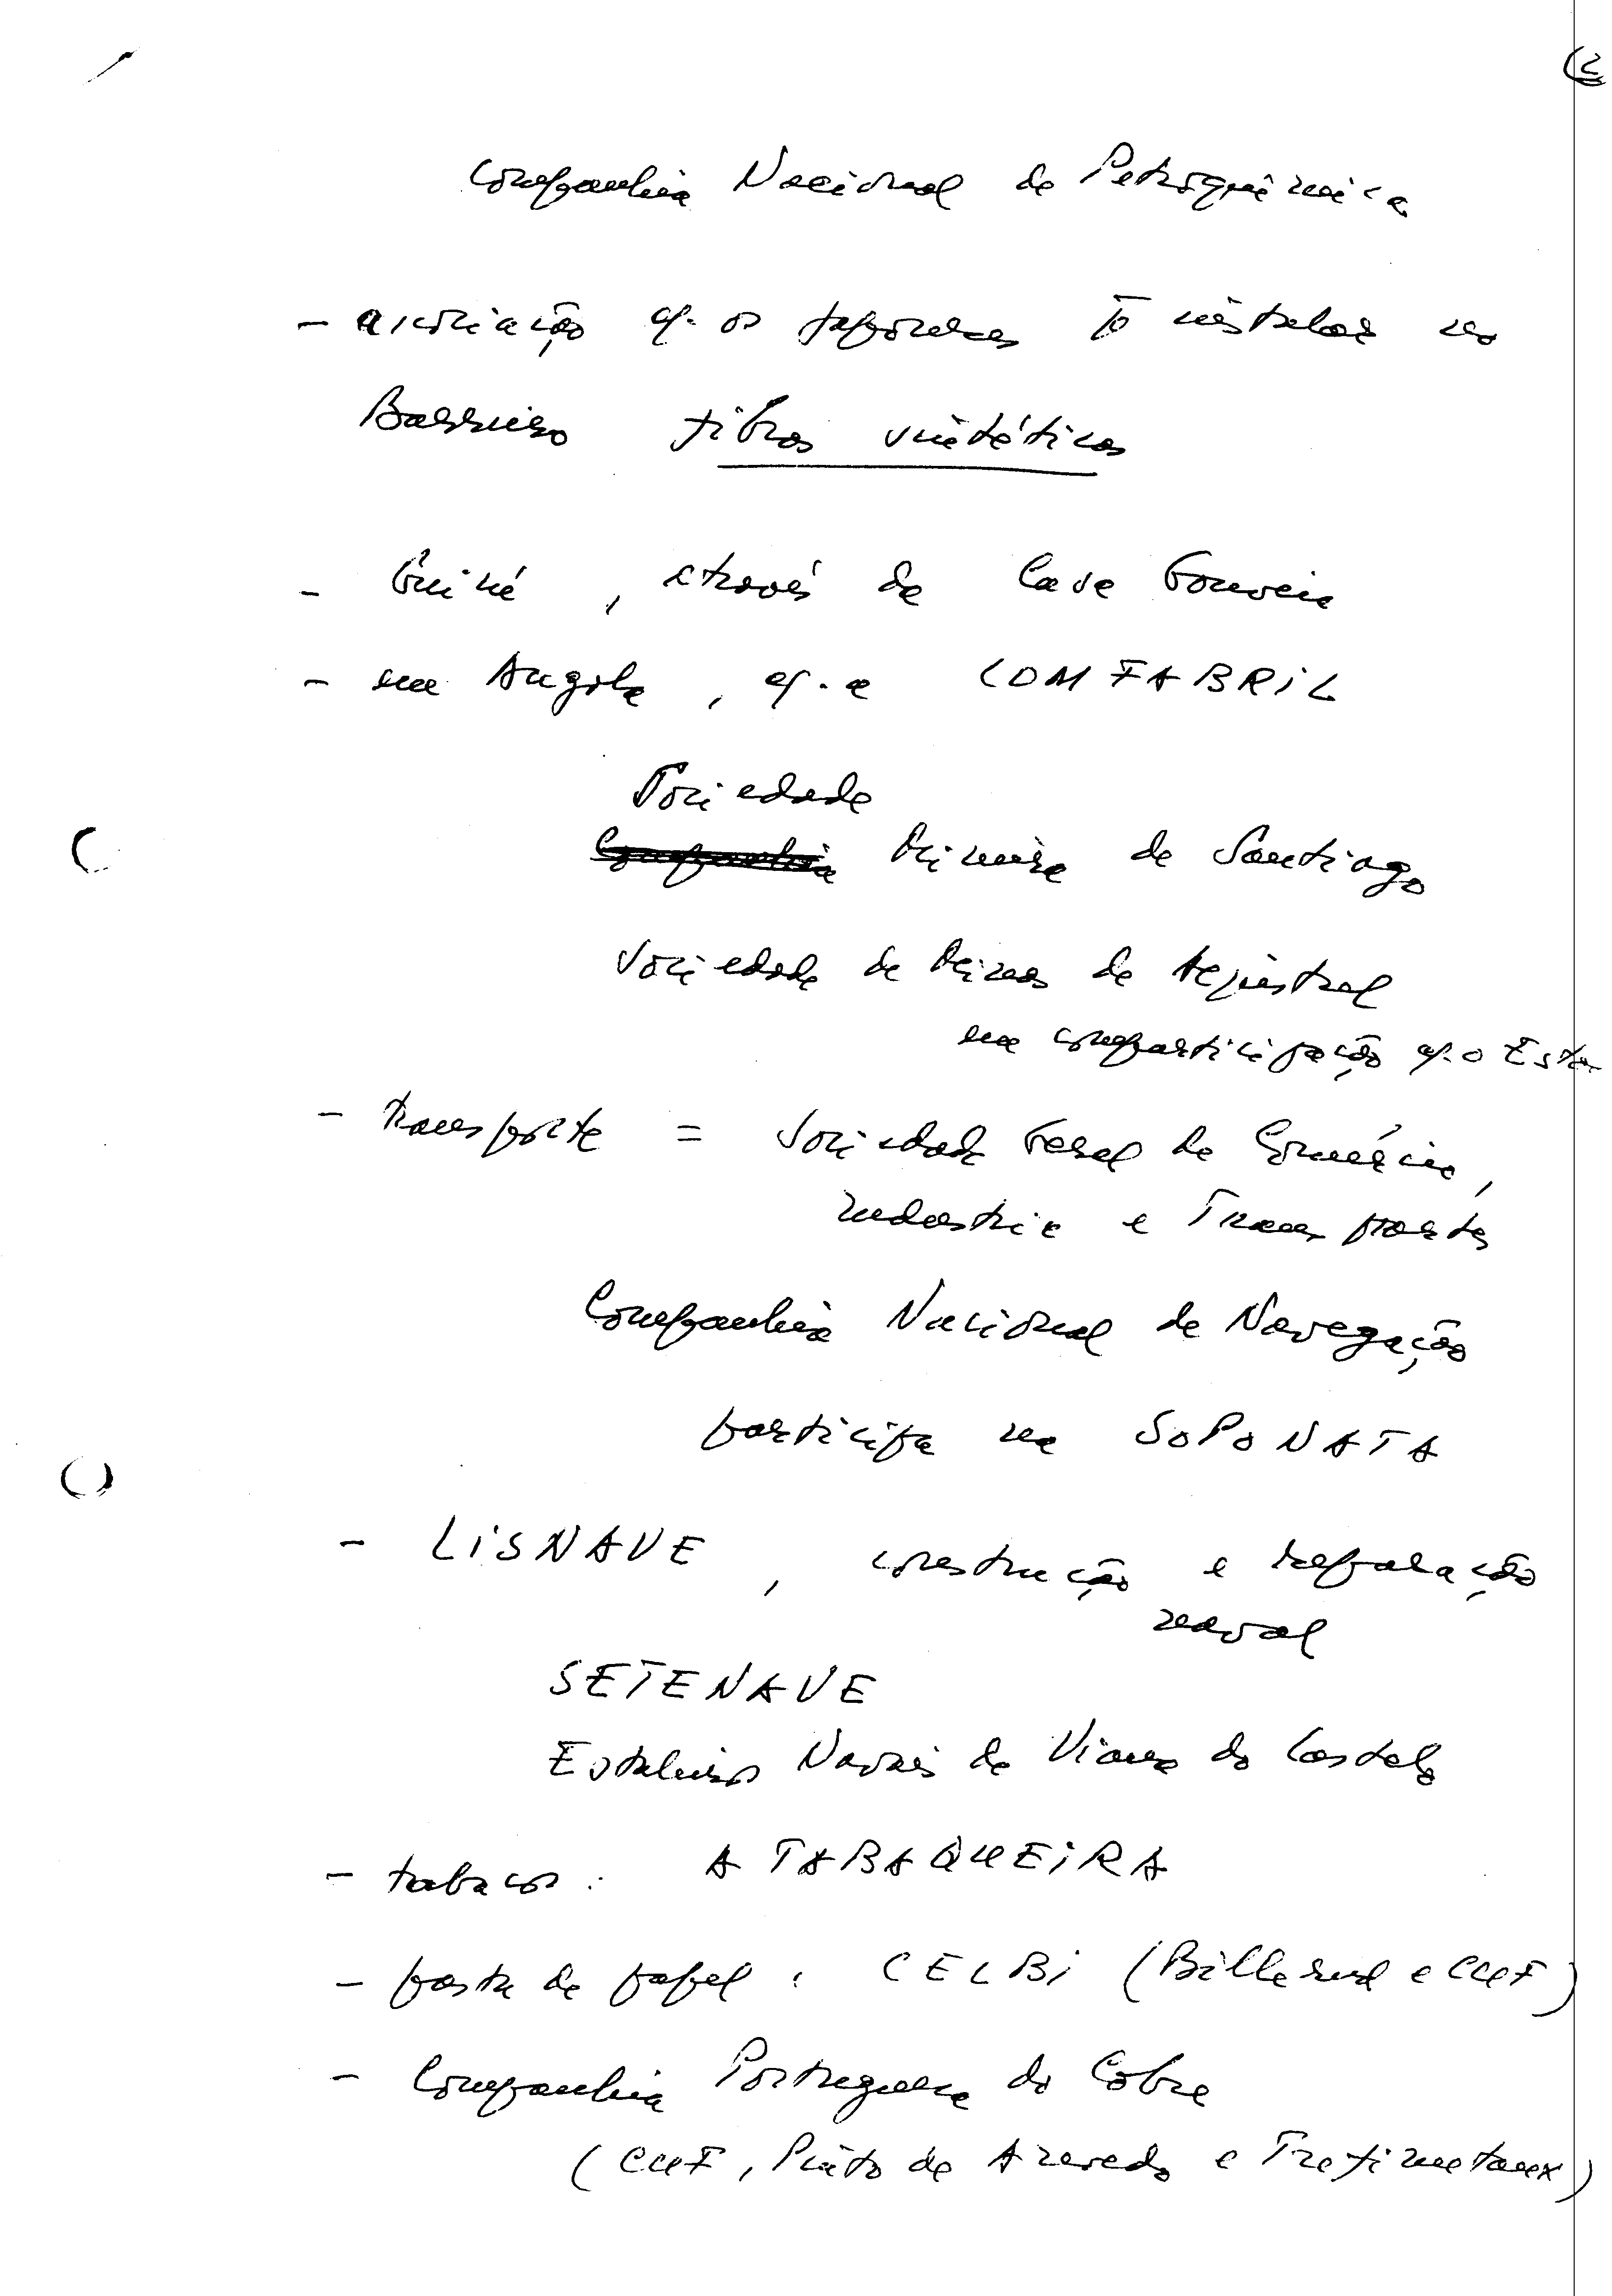 (2
Companhia Nacional de Petroquímica
- associação c/. os japoneses p/ instalar no
Barreiro fibras sintéticas
- Guiné , através da Casa Gouveia
- em Angola , c/. a COMFABRIL
Sociedade
Companhia Mineira de Santiago
Sociedade de Minas de Aljustrel
em comparticipação c/. o Esta
- transporte = Sociedade Geral de Comércio,
Indústria e Transportes
Companhia Nacional de Navegação
participa na SOPONATA
- LISNAVE , construção e reparação
naval
SETENAVE
Estaleiros Navais de Viana do Castelo
- tabacos : A TABAQUEIRA
- pasta de papel : CELBI (Billerud e CUF)
- Companhia Portuguesa do Cobre
(CUF, Pinto de Azevedo e Trefimetaux)